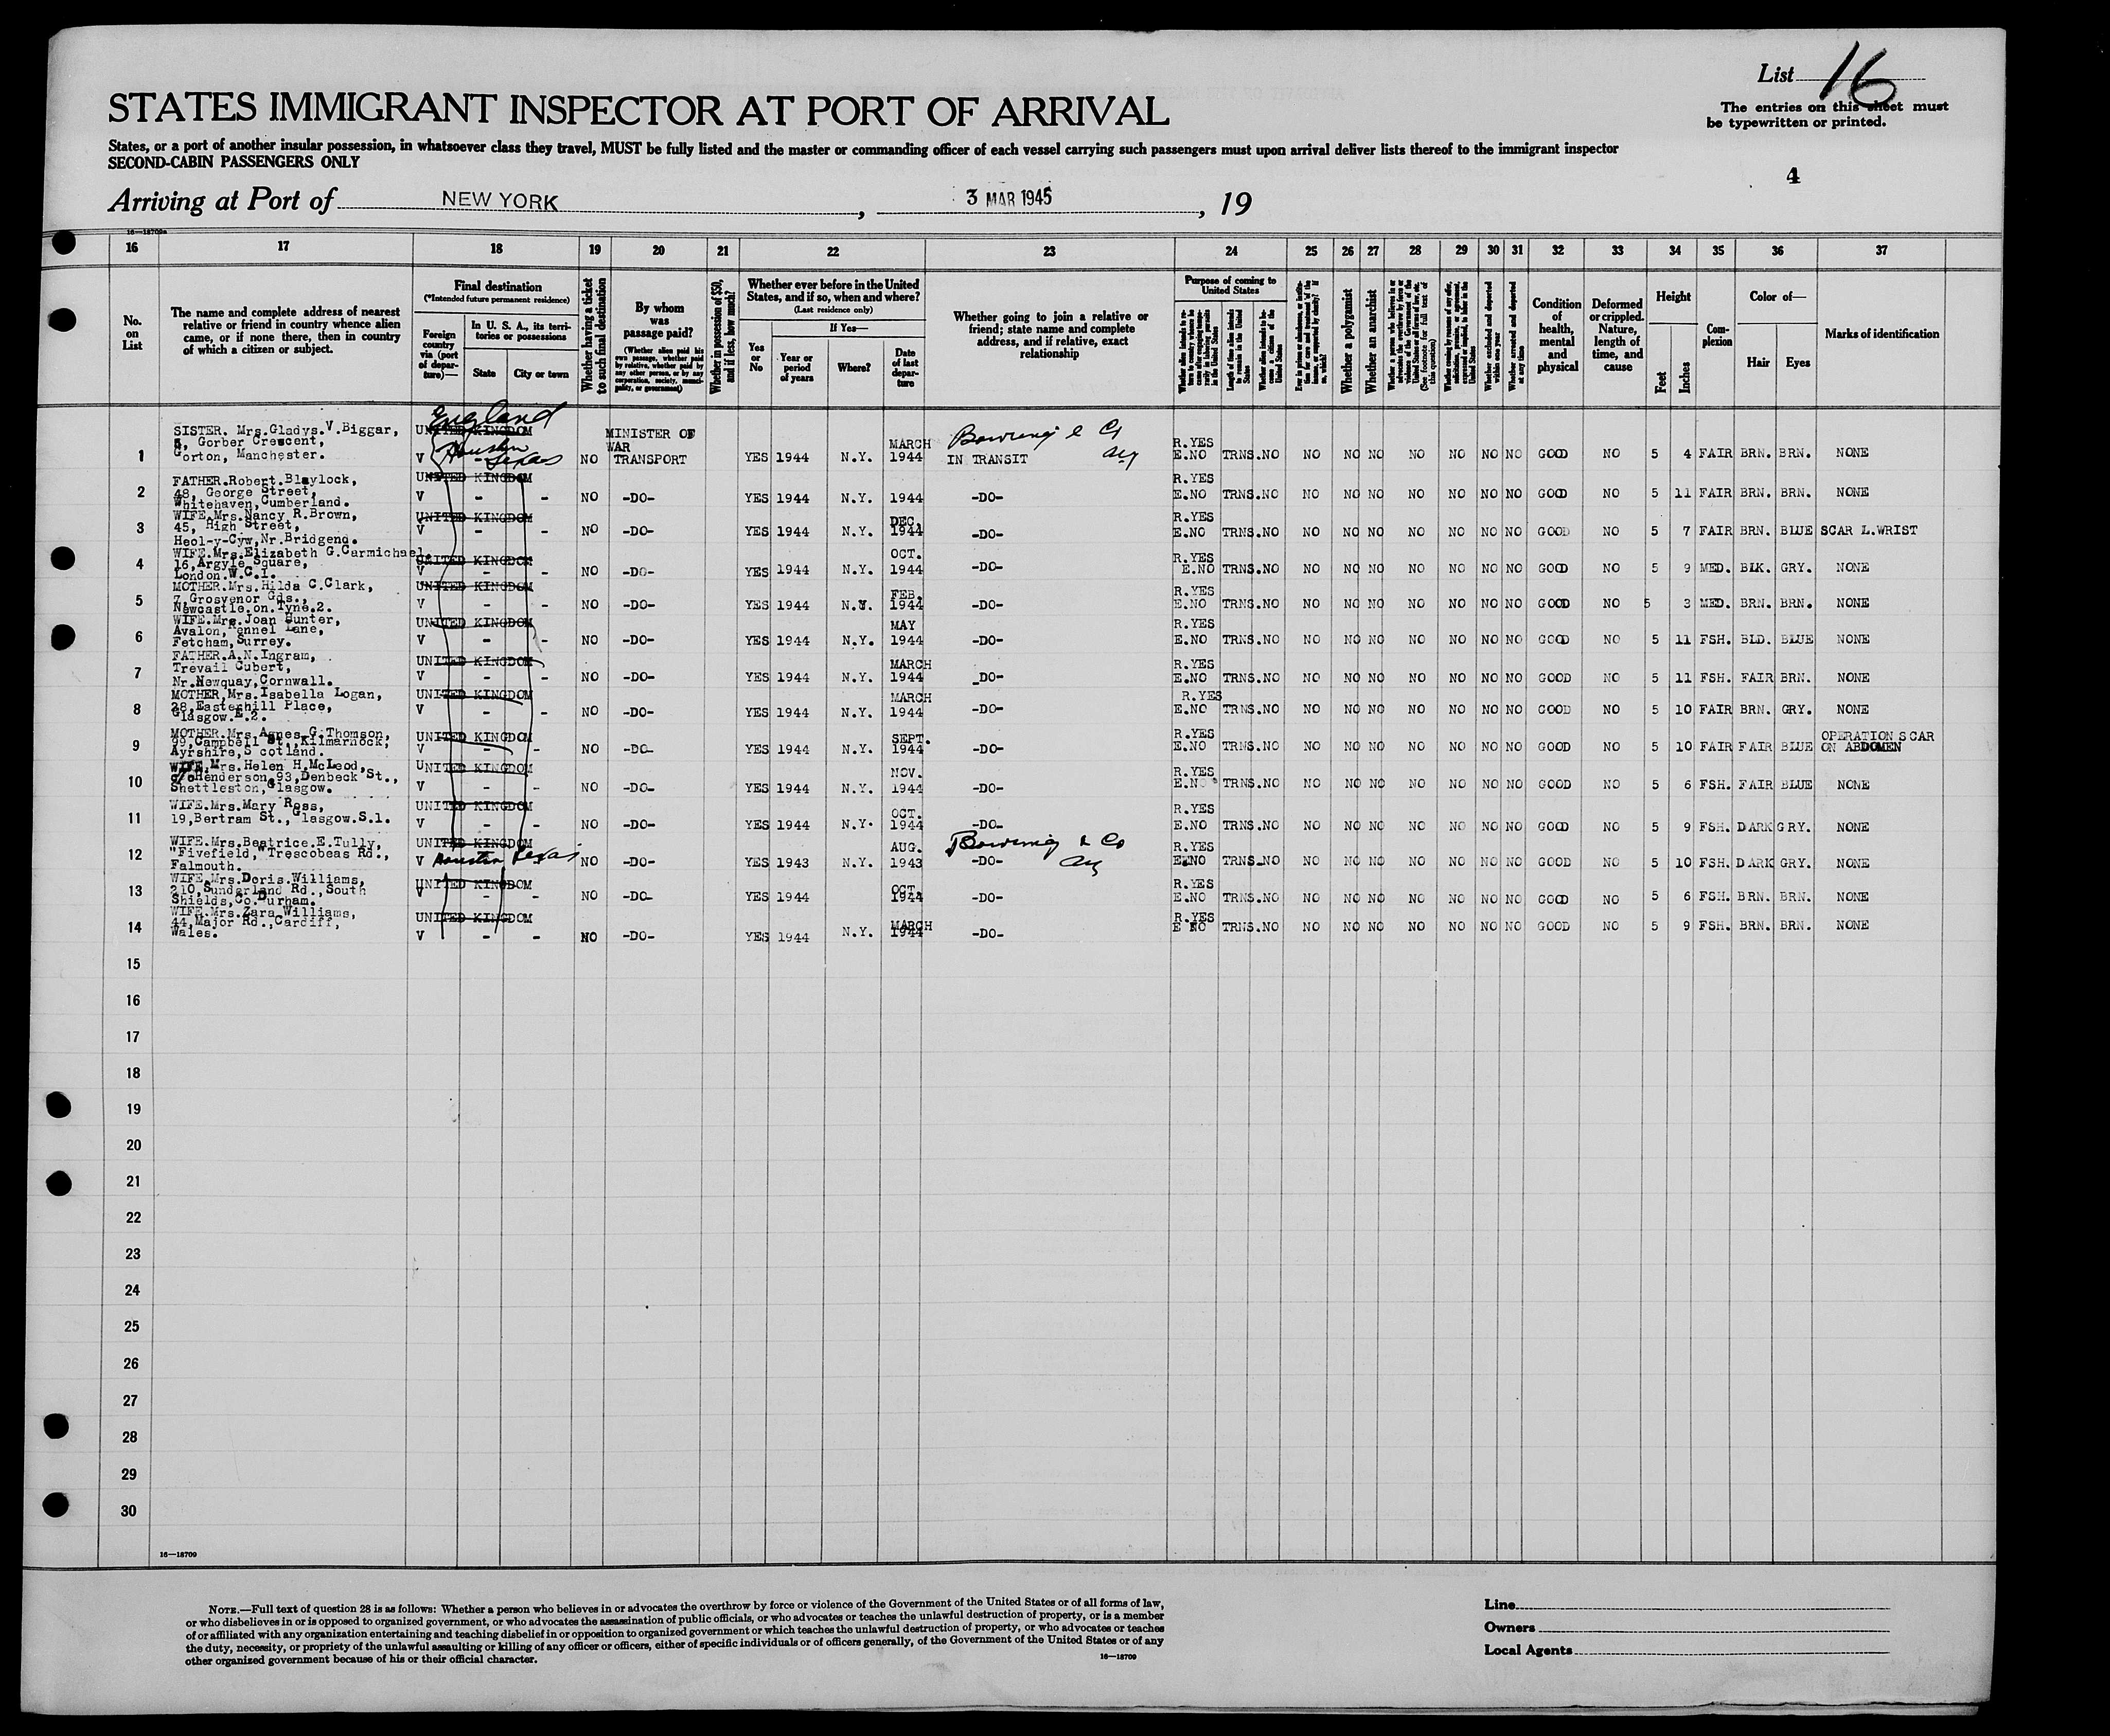 List 16
The entries on this sheet must
be typewritten or printed.
STATES IMMIGRANT INSPECTOR AT PORT OF ARRIVAL
States, or a port of another insular possession, in whatsoever class they travel, MUST be fully listed and the master or commanding officer of each vessel carrying such passengers must upon arrival deliver lists thereof to the immigrant inspector
SECOND-CABIN PASSENGERS ONLY
4
Arriving at Port of NEW YORK , 3 MAR 1945 , 19
16—18709a
16 17 18 19 20 21 22 23 24 25 26 27 28 29 30 31 32 33 34 35 36 37
No. on List
The name and complete address of nearest relative or friend in country whence alien came, or if none there, then in country of which a citizen or subject.
Final destination
(*Intended future permanent residence)
Foreign country via (port of departure)—
In U. S. A., its territories or possessions
State City or town
Whether having a ticket to such final destination
By whom was passage paid?
(Whether alien paid his own passage, whether paid by relative, whether paid by any other person, or by any corporation, society, municipality, or government)
Whether in possession of $50, and if less, how much?
Whether ever before in the United States, and if so, when and where?
(Last residence only)
Yes or No
If Yes—
Year or period of years
Where?
Date of last departure
Whether going to join a relative or friend; state name and complete address, and if relative, exact relationship
Purpose of coming to United States
Length of time alien intends to remain in the United States
Whether alien intends to become a citizen of the United States
Whether a polygamist
Whether an anarchist
Whether excluded and deported within one year
Whether arrested and deported at any time
Condition of health, mental and physical
Deformed or crippled. Nature, length of time, and cause
Height
Feet Inches
Complexion
Color of—
Hair Eyes
Marks of identification
England
Houston Texas
SISTER. Mrs.Gladys.V.Biggar,
5, Gorber Crescent,
Gorton, Manchester.
1 UNITED KINGDOM V - NO MINISTER OF WAR TRANSPORT YES 1944 N.Y. MARCH 1944 Bowring & Co IN TRANSIT R.YES E.NO TRNS.NO NO NO NO NO NO NO NO GOOD NO 5 4 FAIR BRN. BRN. NONE
FATHER.Robert.Blaylock,
48, George Street,
Whitehaven,Cumberland.
2 UNITED KINGDOM V - - NO -DO- YES 1944 N.Y. 1944 -DO- R.YES E.NO TRNS.NO NO NO NO NO NO NO NO GOOD NO 5 11 FAIR BRN. BRN. NONE
WIFE.Mrs.Nancy R.Brown,
45, High Street,
Heol-y-Cyw,Nr.Bridgend.
3 UNITED KINGDOM V - - NO -DO- YES 1944 N.Y. DEC. 1944 -DO- R.YES E.NO TRNS.NO NO NO NO NO NO NO NO GOOD NO 5 7 FAIR BRN. BLUE SCAR L.WRIST
WIFE.Mrs.Elizabeth G.Carmichael.
16,Argyle Square,
London.W.C.1.
4 UNITED KINGDOM V - - NO -DO- YES 1944 N.Y. OCT. 1944 -DO- R.YES E.NO TRNS.NO NO NO NO NO NO NO NO GOOD NO 5 9 MED. BLK. GRY. NONE
MOTHER.Mrs.Hilda C.Clark,
7,Grosvenor Gds.,
Newcastle.on.Tyne.2.
5 UNITED KINGDOM V - - NO -DO- YES 1944 N.Y. FEB. 1944 -DO- R.YES E.NO TRNS.NO NO NO NO NO NO NO NO GOOD NO 5 3 MED. BRN. BRN. NONE
WIFE.Mrs.Joan Gunter,
Avalon,Kennel Lane,
Fetcham,Surrey.
6 UNITED KINGDOM V - - NO -DO- YES 1944 N.Y. MAY 1944 -DO- R.YES E.NO TRNS.NO NO NO NO NO NO NO NO GOOD NO 5 11 FSH. BLD. BLUE NONE
FATHER.A.N.Ingram,
Trevail Cubert,
Nr.Newquay,Cornwall.
7 UNITED KINGDOM V - - NO -DO- YES 1944 N.Y. MARCH 1944 -DO- R.YES E.NO TRNS.NO NO NO NO NO NO NO NO GOOD NO 5 11 FSH. FAIR BRN. NONE
MOTHER,Mrs.Isabella Logan,
28,Easterhill Place,
Glasgow.E.2.
8 UNITED KINGDOM V - - NO -DO- YES 1944 N.Y. MARCH 1944 -DO- R.YES E.NO TRNS.NO NO NO NO NO NO NO NO GOOD NO 5 10 FAIR BRN. GRY. NONE
MOTHER.Mrs.Agnes.G.Thomson,
99,Campbell St.,Kilmarnock,
Ayrshire,Scotland.
9 UNITED KINGDOM V - - NO -DO- YES 1944 N.Y. SEPT. 1944 -DO- R.YES E.NO TRNS.NO NO NO NO NO NO NO NO GOOD NO 5 10 FAIR FAIR BLUE OPERATION SCAR ON ABDOMEN
WIFE,Mrs.Helen H.McLeod,
c/oHenderson,93,Denbeck St.,
Shettleston,Glasgow.
10 UNITED KINGDOM V - - NO -DO- YES 1944 N.Y. NOV. 1944 -DO- R.YES E.NO TRNS.NO NO NO NO NO NO NO NO GOOD NO 5 6 FSH. FAIR BLUE NONE
WIFE.Mrs.Mary Ross,
19,Bertram St.,Glasgow.S.1.
11 UNITED KINGDOM V - - NO -DO- YES 1944 N.Y. OCT. 1944 -DO- R.YES E.NO TRNS.NO NO NO NO NO NO NO NO GOOD NO 5 9 FSH. DARK GRY. NONE
WIFE.Mrs.Beatrice.E.Tully,
"Fivefield,"Trescobeas Rd.,
Falmouth.
12 UNITED KINGDOM V Houston Texas NO -DO- YES 1943 N.Y. AUG. 1943 Bowring & Co -DO- R.YES E.NO TRNS.NO NO NO NO NO NO NO NO GOOD NO 5 10 FSH. DARK GRY. NONE
WIFE.Mrs.Doris.Williams,
210,Sunderland Rd.,South
Shields,Co.Durham.
13 UNITED KINGDOM V - - NO -DO- YES 1944 N.Y. OCT. 1944 -DO- R.YES E.NO TRNS.NO NO NO NO NO NO NO NO GOOD NO 5 6 FSH. BRN. BRN. NONE
WIFE.Mrs.Zara Williams,
44,Major Rd.,Cardiff,
Wales.
14 UNITED KINGDOM V - - NO -DO- YES 1944 N.Y. MARCH 1944 -DO- R.YES E NO TRNS.NO NO NO NO NO NO NO NO GOOD NO 5 9 FSH. BRN. BRN. NONE
15
16
17
18
19
20
21
22
23
24
25
26
27
28
29
30
16—18709
NOTE.—Full text of question 28 is as follows: Whether a person who believes in or advocates the overthrow by force or violence of the Government of the United States or of all forms of law,
or who disbelieves in or is opposed to organized government, or who advocates the assassination of public officials, or who advocates or teaches the unlawful destruction of property, or is a member
of or affiliated with any organization entertaining and teaching disbelief in or opposition to organized government or which teaches the unlawful destruction of property, or who advocates or teaches
the duty, necessity, or propriety of the unlawful assaulting or killing of any officer or officers, either of specific individuals or of officers generally, of the Government of the United States or of any
other organized government because of his or their official character.
16—18709
Line
Owners
Local Agents